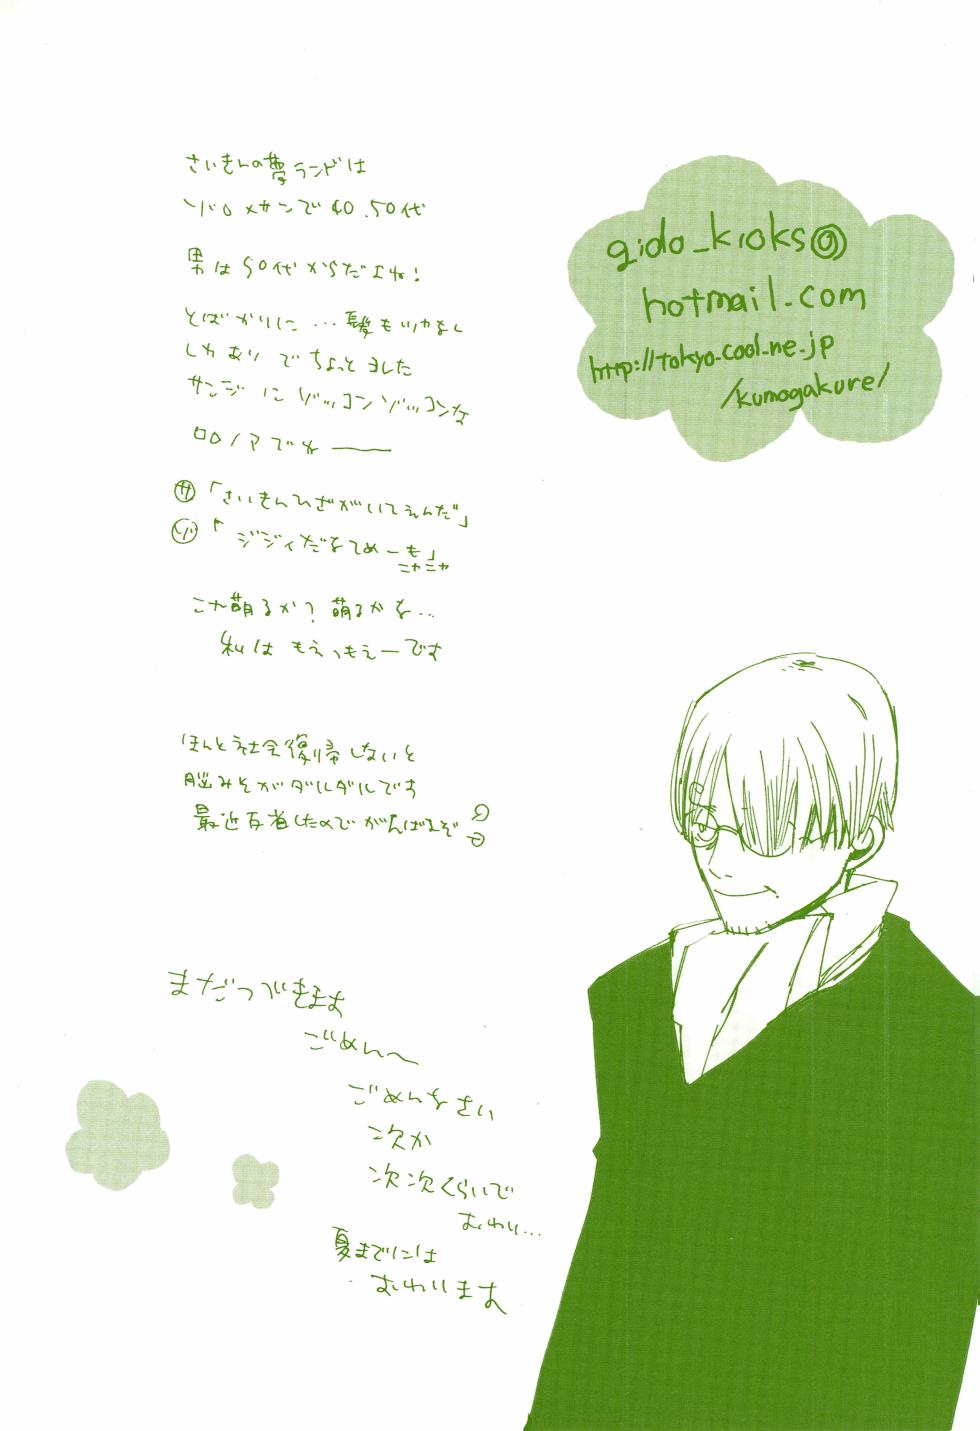 さいきんの夢ランドは
ゾロ×サンで40.50代
男は50代からだよね!
とばかりに…髪もツヤなし
シワありでちょっとヨレた
サンジにゾッコンゾッコンな
ロロノアでね――
サ「さいきんひざがいてえんだ」
ゾ「ジジィだなてめーも」
ニヤニヤ
こナ萌るか?萌るかな…
私はもえっもえーです
ほんと社会復帰しないと
脳みそがダルダルです
最近反省したのでがんばるぞ
まだつづきます
ごめん〜
ごめんなさい
次か
次次くらいで
おわり…
夏までには
おわります
gido_kioks@
hotmail.com
http://tokyo.cool.ne.jp
/kumogakure/